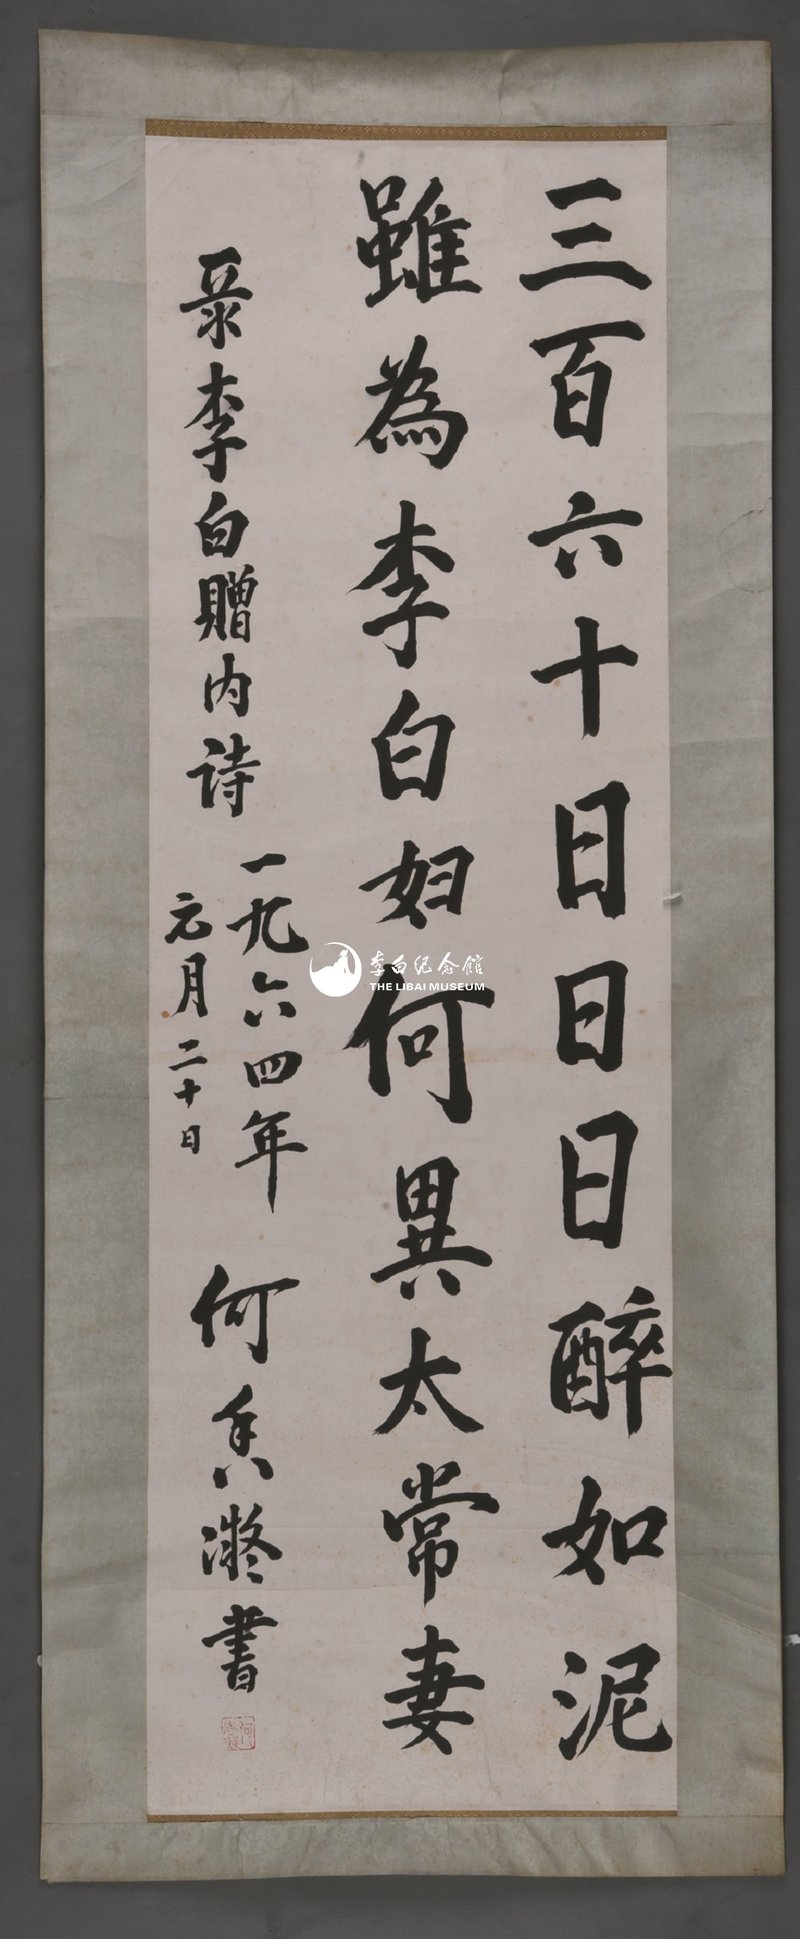 三百六十日日日醉如泥
雖為李白妇何異太常妻
录李白贈内诗
一九六四年
元月二十日
何香凝書
何香凝
李白纪念館
THE LIBAI MUSEUM